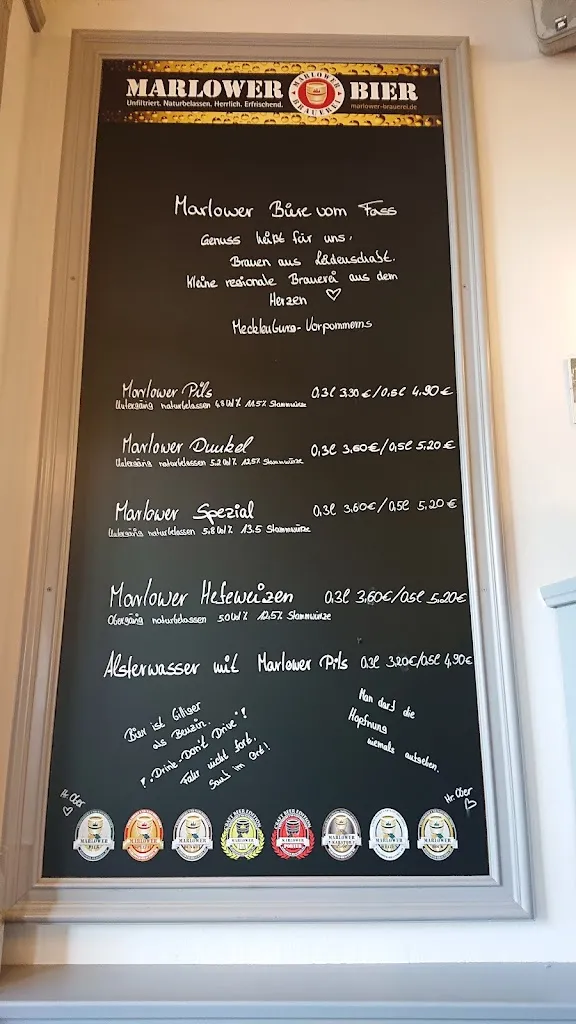 MARLOWER BIER
Unfiltriert. Naturbelassen. Herrlich. Erfrischend.
MARLOWER BRAUEREI
marlower-brauerei.de
Marlower Biere vom Fass
Genuss heißt für uns,
Brauen aus Leidenschaft.
Kleine regionale Brauerei aus dem
Herzen ♡
Mecklenburg-Vorpommerns
Marlower Pils 0,3l 3,30 €/0,5l 4,90 €
Untergärig naturbelassen 4,8 Vol % 11,5% Stammwürze
Marlower Dunkel 0,3l 3,60€/0,5l 5,20 €
Untergärig naturbelassen 5,2 Vol % 12,5% Stammwürze
Marlower Spezial 0,3l 3,60€/0,5l 5,20 €
Untergärig naturbelassen 5,8 Vol % 13,5 Stammwürze
Marlower Hefeweizen 0,3l 3,60€/0,5l 5,20€
Obergärig naturbelassen 5,0 Vol % 12,5% Stammwürze
Alsterwasser mit Marlower Pils 0,3l 3,20€/0,5l 4,90€
Bier ist billiger
als Benzin.
? "Drink-Don't Drive"!
Fahr nicht fort,
Sauf im Ort!
Hr. Ober
♡
Man darf die
Hopfnung
niemals aufgeben.
Hr. Ober
♡
CRAFT BEER EDITION
CRAFT BEER EDITION
MARLOWER
PORTER